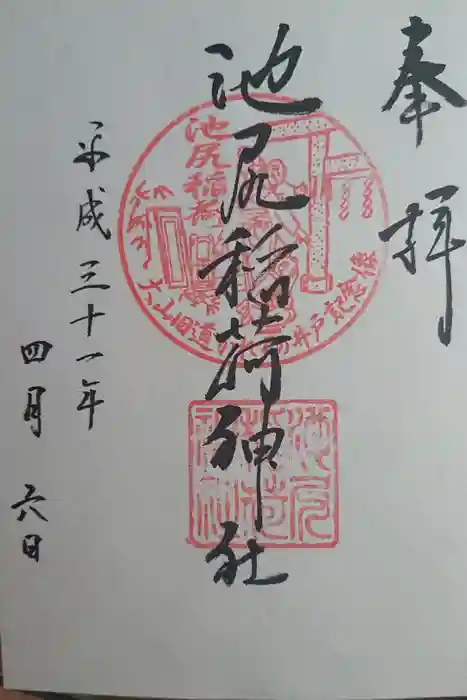 奉拝
池尻稲荷神社
平成三十一年
四月六日
池尻稲荷
大山旧道
井戸記念像
池尻稲荷神社